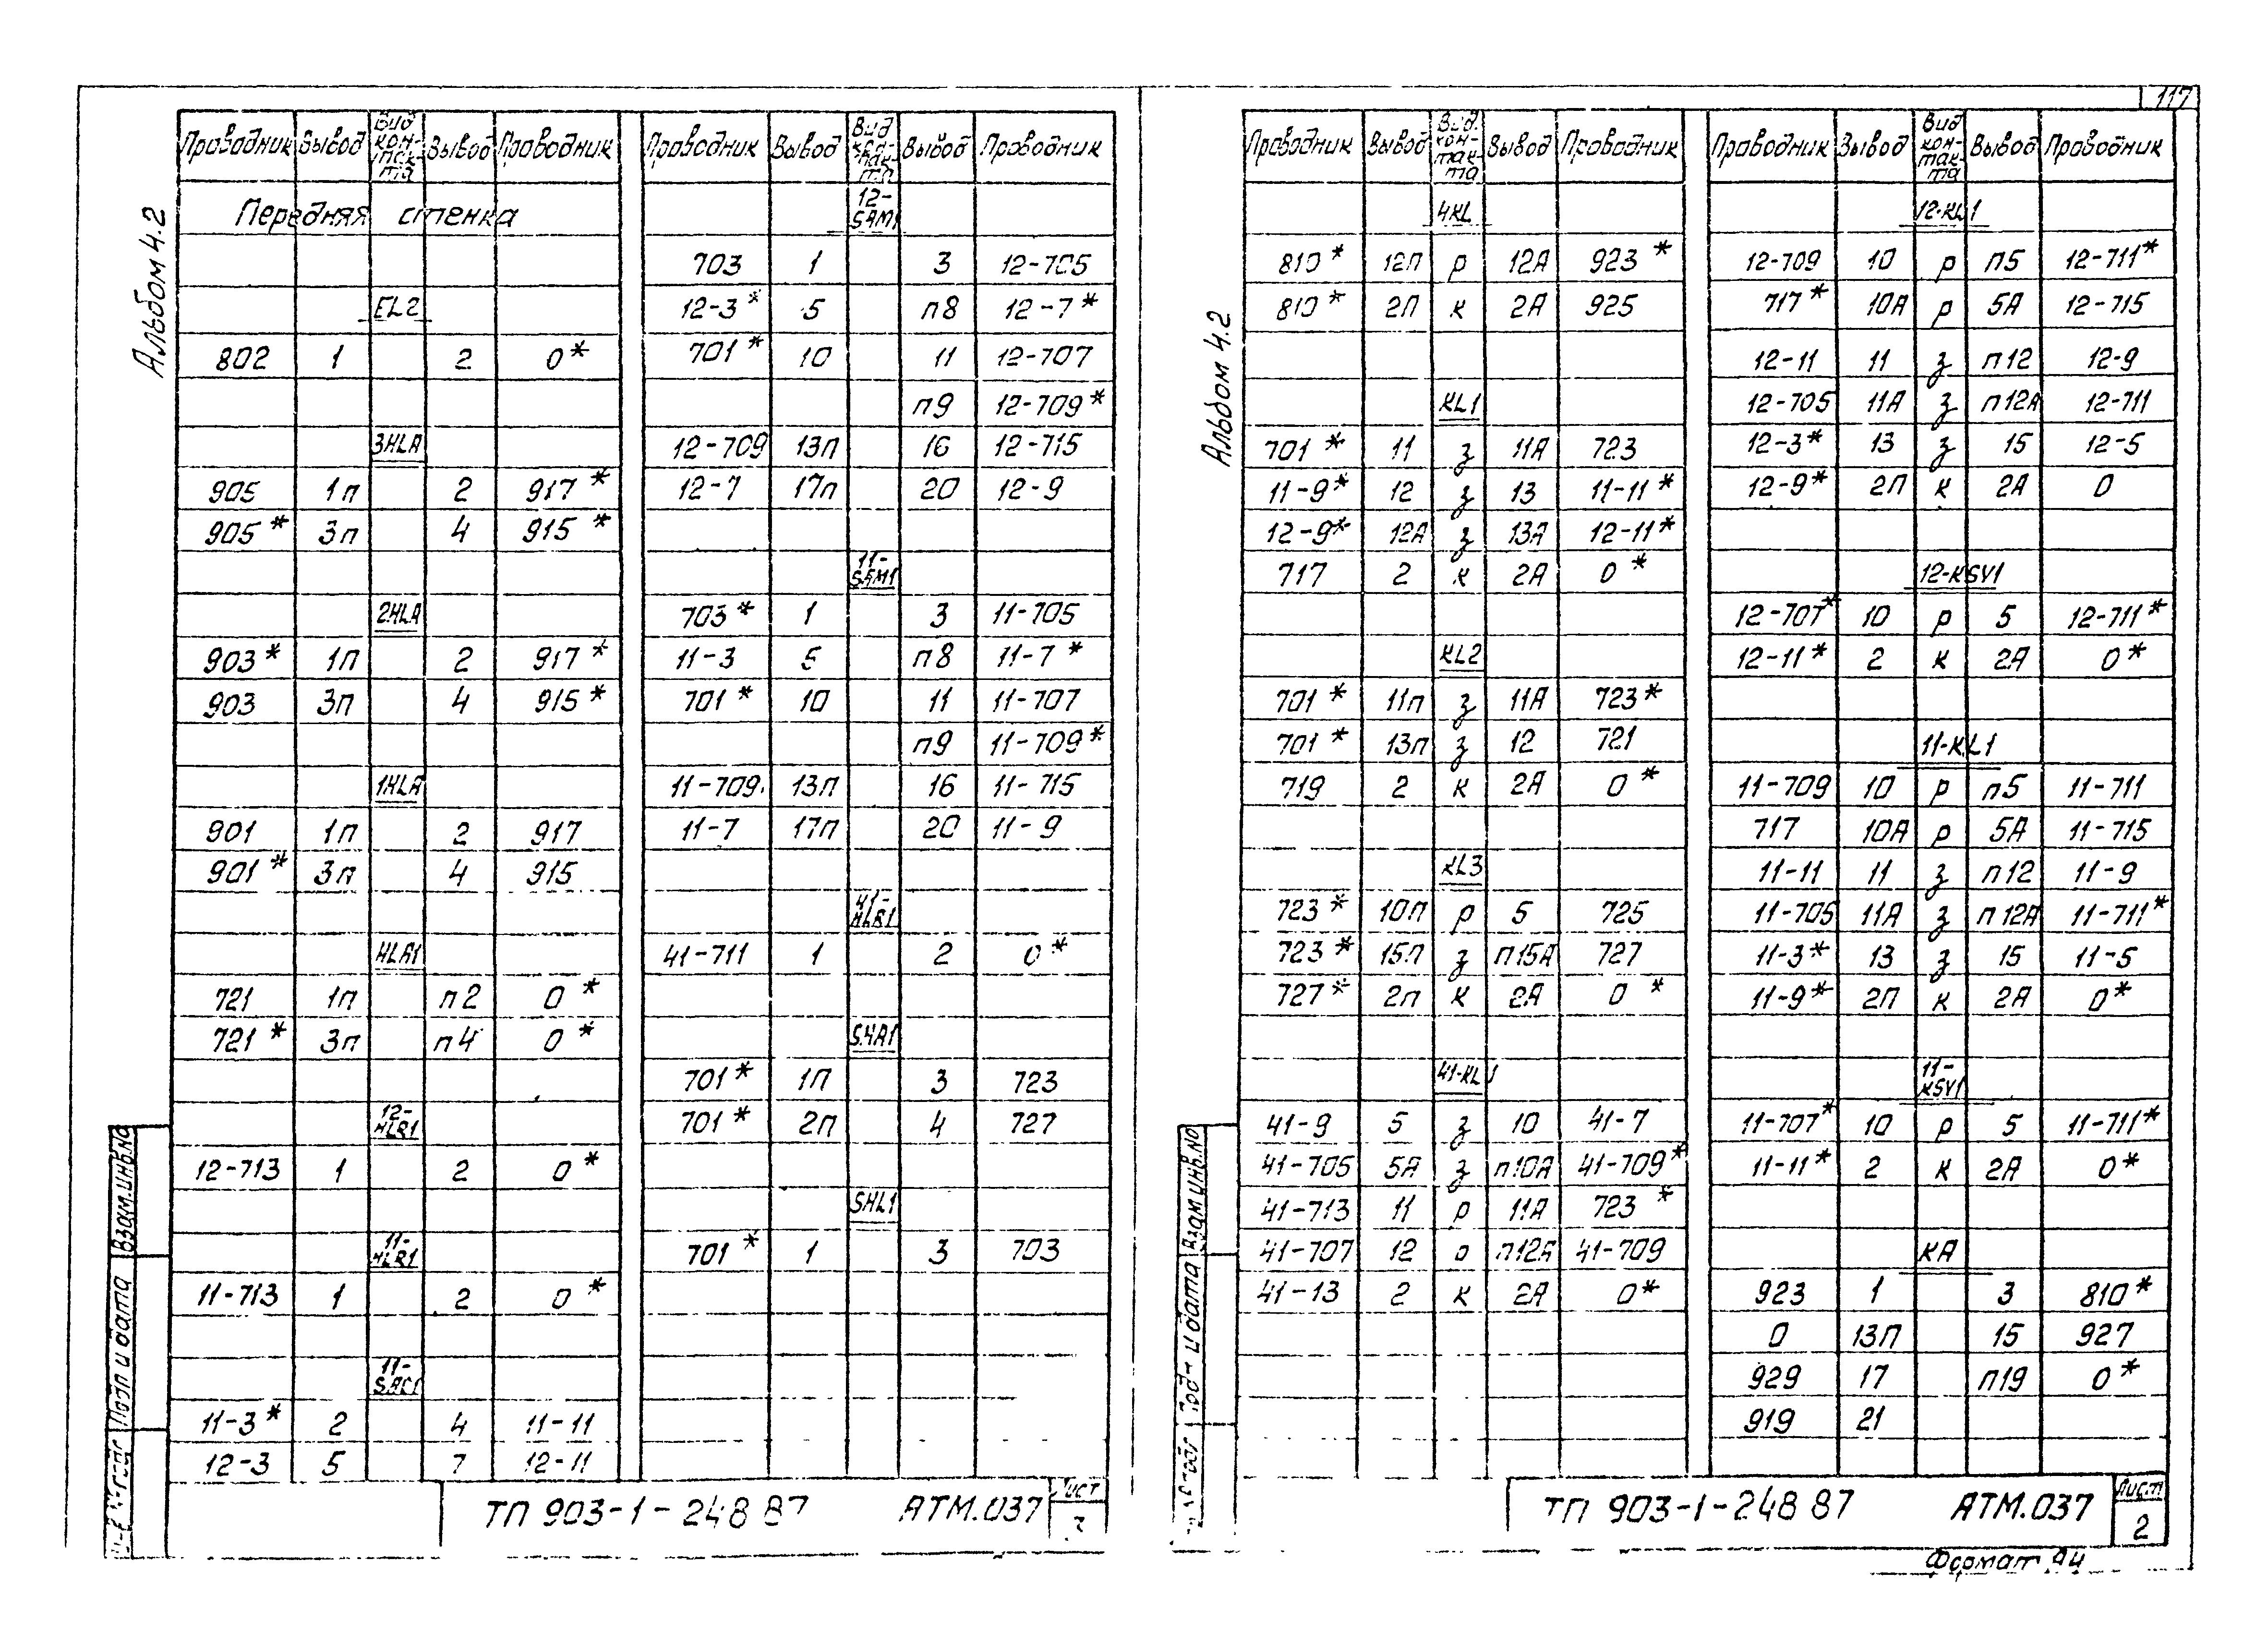 117
Альбом 4.2
Проводник Вывод Вид контакта Вывод Проводник
Передняя стенка
EL2
802 1 2 0*
3HLA
905 1п 2 917*
905* 3п 4 915*
2HLA
903* 1п 2 917*
903 3п 4 915*
1HLA
901 1п 2 917
901* 3п 4 915
HLA1
721 1п п2 0*
721* 3п п4 0*
12-HLR1
12-713 1 2 0*
11-HLR1
11-713 1 2 0*
11-SAC1
11-3* 2 4 11-11
12-3 5 7 12-11
Проводник Вывод Вид контакта Вывод Проводник
12-SAM1
703 1 3 12-705
12-3* 5 п8 12-7*
701* 10 11 12-707
п9 12-709*
12-709 13п 16 12-715
12-7 17п 20 12-9
11-SAM1
703* 1 3 11-705
11-3 5 п8 11-7*
701* 10 11 11-707
п9 11-709*
11-709 13п 16 11-715
11-7 17п 20 11-9
41-HLR1
41-711 1 2 0*
SHA1
701* 1п 3 723
701* 2п 4 727
SHL1
701* 1 3 703
Взам.инв.No
Подп и дата
ТП 903-1-248 87 АТМ.037
Лист
Альбом 4.2
Проводник Вывод Вид контакта Вывод Проводник
4KL
810* 12п р 12А 923*
810* 2п к 2А 925
KL1
701* 11 з 11А 723
11-9* 12 з 13 11-11*
12-9* 12А з 13А 12-11*
717 2 к 2А 0*
KL2
701* 11п з 11А 723*
701* 13п з 12 721
719 2 к 2А 0*
KL3
723* 10п р 5 725
723* 15п з п15А 727
727* 2п к 2А 0*
41-KL1
41-9 5 з 10 41-7
41-705 5А з п10А 41-709*
41-713 11 р 11А 723*
41-707 12 р п12А 41-709
41-13 2 к 2А 0*
Проводник Вывод Вид контакта Вывод Проводник
12-KL1
12-709 10 р п5 12-711*
717* 10А р 5А 12-715
12-11 11 з п12 12-9
12-705 11А з п12А 12-711
12-3* 13 з 15 12-5
12-9* 2п к 2А 0
12-KSV1
12-707* 10 р 5 12-711*
12-11* 2 к 2А 0*
11-KL1
11-709 10 р п5 11-711
717 10А р 5А 11-715
11-11 11 з п12 11-9
11-705 11А з п12А 11-711*
11-3* 13 з 15 11-5
11-9* 2п к 2А 0*
11-KSV1
11-707* 10 р 5 11-711*
11-11* 2 к 2А 0*
KA
923 1 3 810*
0 13п 15 927
929 17 п19 0*
919 21
Взам.инв.No
Подп и дата
ТП 903-1-248 87 АТМ.037
Лист
2
Формат А4